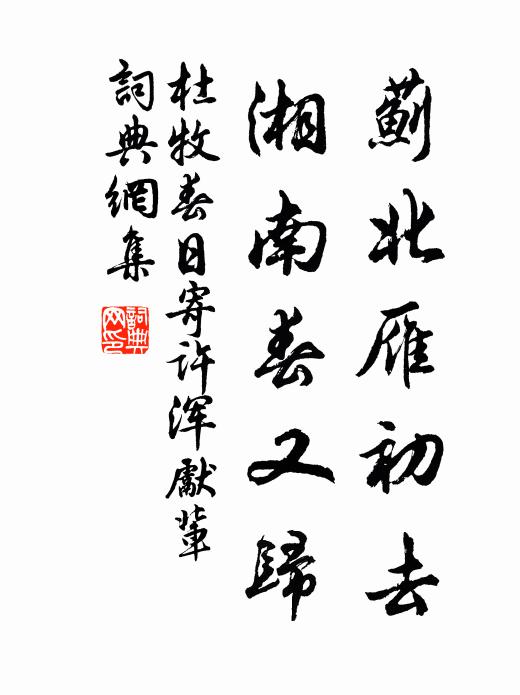 薊北雁初去
湘南春又歸
杜牧春日寄許渾獻輩
詞典網集
詞典网印